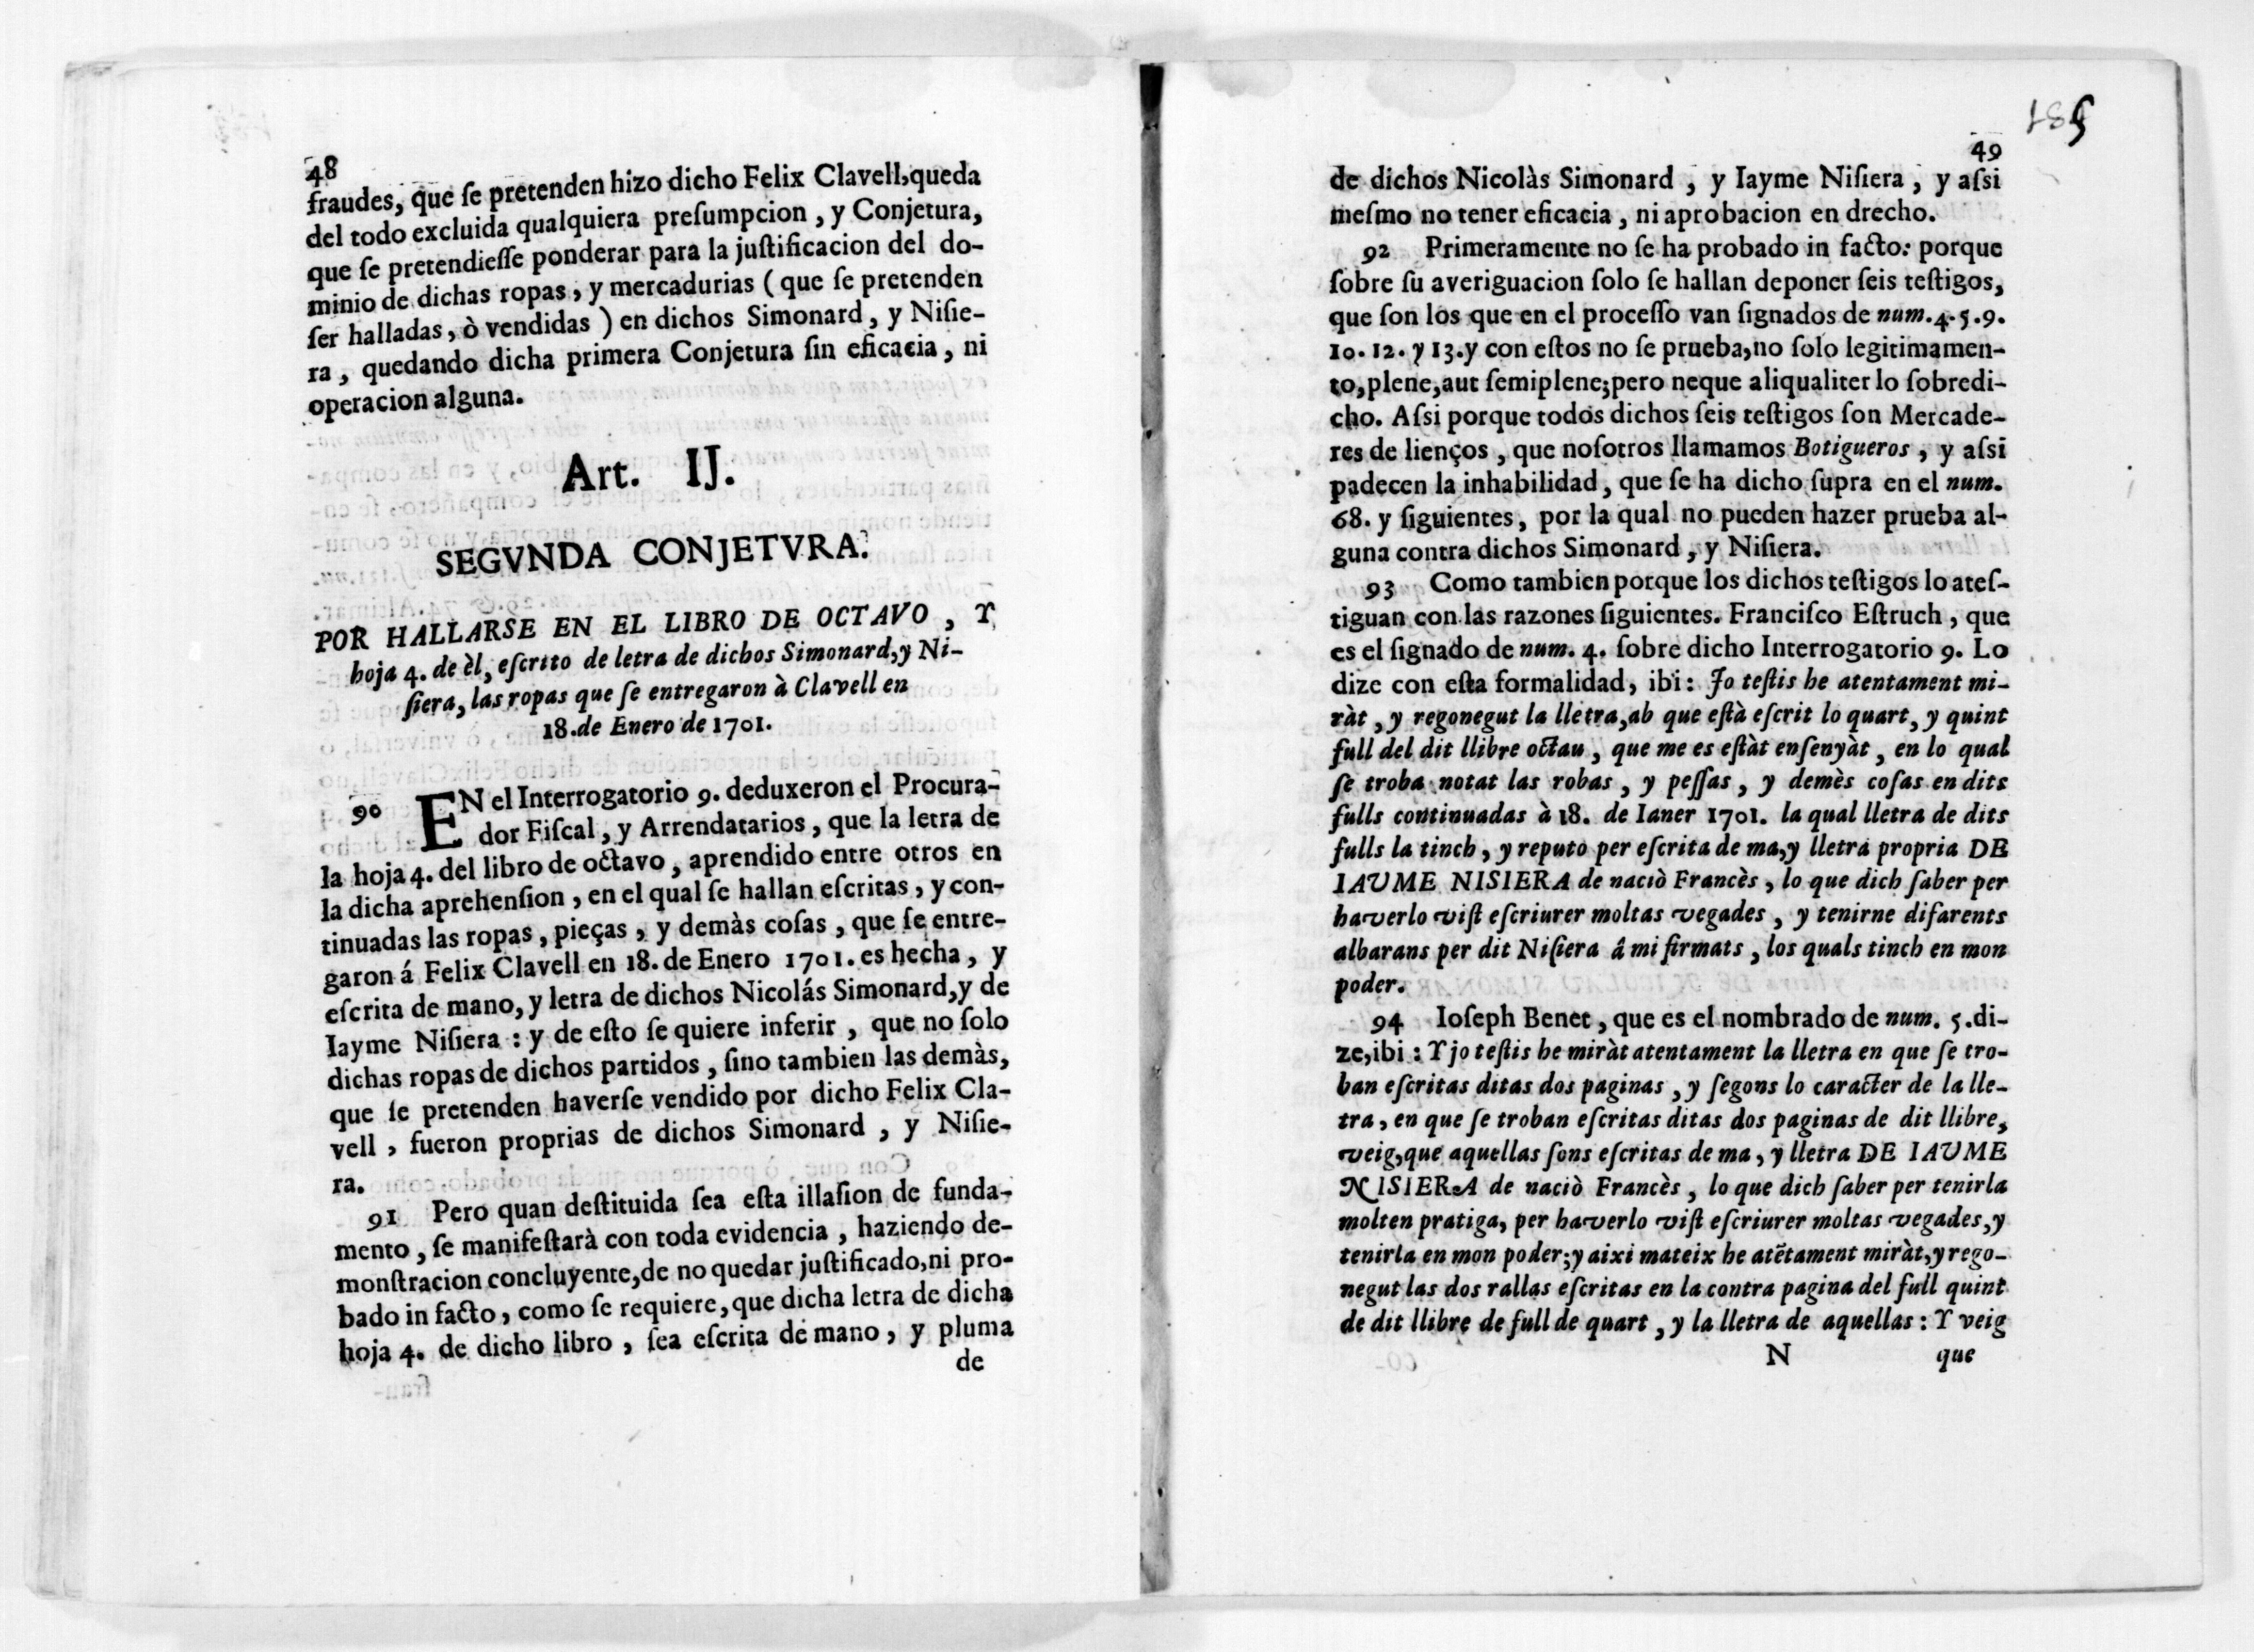 48
fraudes, que ſe pretenden hizo dicho Felix Clavell,queda
del todo excluida qualquiera preſumpcion , y Conjetura,
que ſe pretendieſſe ponderar para la juſtificacion del do-
minio de dichas ropas , y mercadurias ( que ſe pretenden
ſer halladas , ò vendidas ) en dichos Simonard , y Niſie-
ra , quedando dicha primera Conjetura ſin eficacia , ni
operacion alguna.
Art. IJ.
SEGVNDA CONJETVRA.
POR HALLARSE EN EL LIBRO DE OCTAVO , Y
hoja 4. de èl, eſcrito de letra de dichos Simonard,y Ni-
ſiera, las ropas que ſe entregaron à Clavell en
18.de Enero de 1701.
90 EN el Interrogatorio 9. deduxeron el Procura-
dor Fiſcal , y Arrendatarios , que la letra de
la hoja 4. del libro de octavo , aprendido entre otros en
la dicha aprehenſion , en el qual ſe hallan eſcritas , y con-
tinuadas las ropas , pieças , y demàs coſas , que ſe entre-
garon á Felix Clavell en 18. de Enero 1701. es hecha , y
eſcrita de mano, y letra de dichos Nicolás Simonard,y de
Iayme Niſiera : y de eſto ſe quiere inferir , que no ſolo
dichas ropas de dichos partidos , ſino tambien las demàs,
que ſe pretenden haverſe vendido por dicho Felix Cla-
vell , fueron proprias de dichos Simonard , y Niſie-
ra.
91 Pero quan deſtituida ſea eſta illaſion de funda-
mento , ſe manifeſtarà con toda evidencia , haziendo de-
monſtracion concluyente,de no quedar juſtificado,ni pro-
bado in facto , como ſe requiere, que dicha letra de dicha
hoja 4. de dicho libro , ſea eſcrita de mano , y pluma
de
185
49
de dichos Nicolàs Simonard , y Iayme Niſiera , y aſsi
meſmo no tener eficacia , ni aprobacion en drecho.
92 Primeramente no ſe ha probado in facto: porque
ſobre ſu averiguacion ſolo ſe hallan deponer ſeis teſtigos,
que ſon los que en el proceſſo van ſignados de num.4.5.9.
10. 12. y 13.y con eſtos no ſe prueba,no ſolo legitimamen-
to,plene,aut ſemiplene;pero neque aliqualiter lo ſobredi-
cho. Aſsi porque todos dichos ſeis teſtigos ſon Mercade-
res de lienços , que noſotros llamamos Botigueros , y aſsi
padecen la inhabilidad , que ſe ha dicho ſupra en el num.
68. y ſiguientes , por la qual no pueden hazer prueba al-
guna contra dichos Simonard , y Niſiera.
93 Como tambien porque los dichos teſtigos lo ateſ-
tiguan con las razones ſiguientes. Franciſco Eſtruch , que
es el ſignado de num. 4. ſobre dicho Interrogatorio 9. Lo
dize con eſta formalidad, ibi: Jo teſtis he atentament mi-
ràt , y regonegut la lletra,ab que eſtà eſcrit lo quart, y quint
full del dit llibre octau , que me es eſtàt enſenyàt , en lo qual
ſe troba notat las robas , y peſſas , y demès coſas en dits
fulls continuadas à 18. de Ianer 1701. la qual lletra de dits
fulls la tinch , y reputo per eſcrita de ma,y lletra propria DE
IAUME NISIERA de naciò Francès , lo que dich ſaber per
haverlo viſt eſcriurer moltas vegades , y tenirne difarents
albarans per dit Niſiera â mi firmats , los quals tinch en mon
poder.
94 Ioſeph Benet , que es el nombrado de num. 5.di-
ze,ibi : Y jo teſtis he miràt atentament la lletra en que ſe tro-
ban eſcritas ditas dos paginas , y ſegons lo caracter de la lle-
tra , en que ſe troban eſcritas ditas dos paginas de dit llibre,
veig,que aquellas ſons eſcritas de ma , y lletra DE IAUME
NISIERA de naciò Francès , lo que dich ſaber per tenirla
molten pratiga, per haverlo viſt eſcriurer moltas vegades,y
tenirla en mon poder;y aixi mateix he atẽtament miràt,y rego-
negut las dos rallas eſcritas en la contra pagina del full quint
de dit llibre de full de quart , y la lletra de aquellas : Y veig
N que